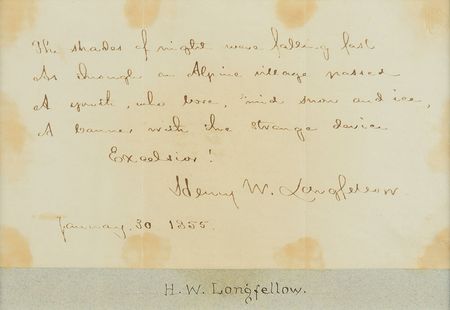 The shades of night were falling fast
As through an Alpine village passed
A youth, who bore, 'mid snow and ice,
A banner with the strange device
Excelsior!
Henry W. Longfellow
January. 30 1855.
H. W. Longfellow.